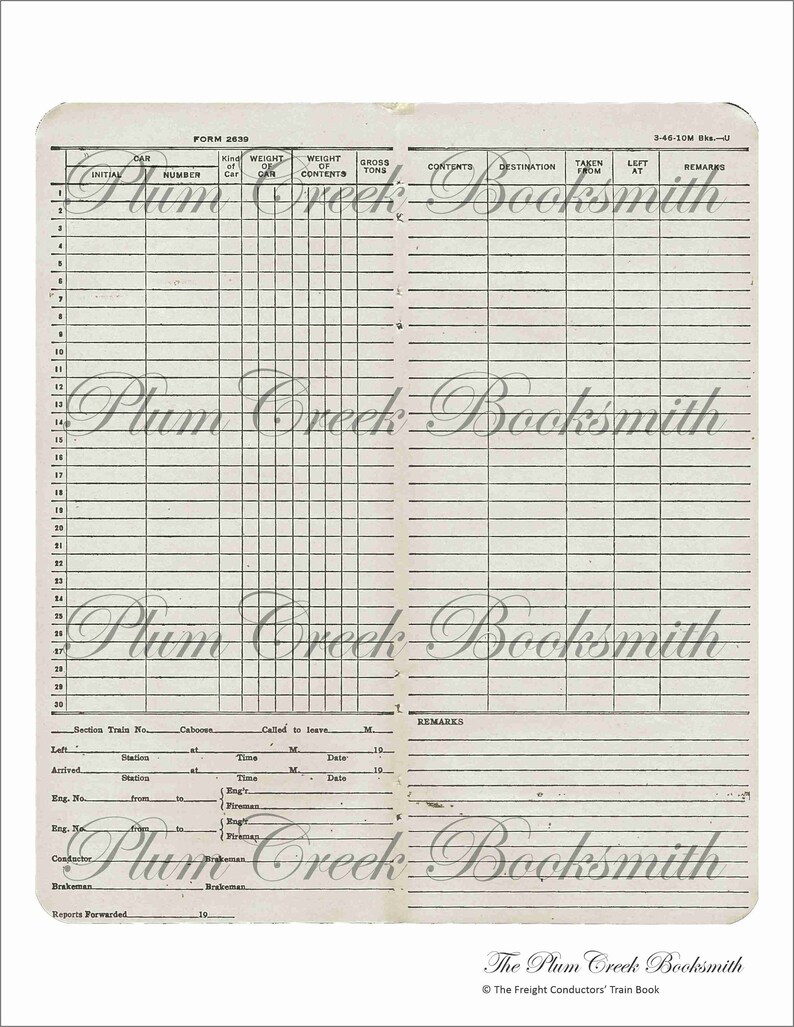 FORM 2639
3-46-10M Bks.—U
CAR
INITIAL NUMBER
Kind of Car
WEIGHT OF CAR
WEIGHT OF CONTENTS
GROSS TONS
CONTENTS
DESTINATION
TAKEN FROM
LEFT AT
REMARKS
1
2
3
4
5
6
7
8
9
10
11
12
13
14
15
16
17
18
19
20
21
22
23
24
25
26
27
28
29
30
Plum Creek Booksmith
Plum Creek Booksmith
Plum Creek Booksmith
Plum Creek Booksmith
Section Train No. Caboose Called to leave M.
Left at M. 19
Station Time Date
Arrived at M. 19
Station Time Date
Eng. No. from to Eng'r
Fireman
Eng. No. from to Eng'r
Fireman
Conductor Brakeman
Brakeman Brakeman
Reports Forwarded 19
REMARKS
The Plum Creek Booksmith
© The Freight Conductors' Train Book